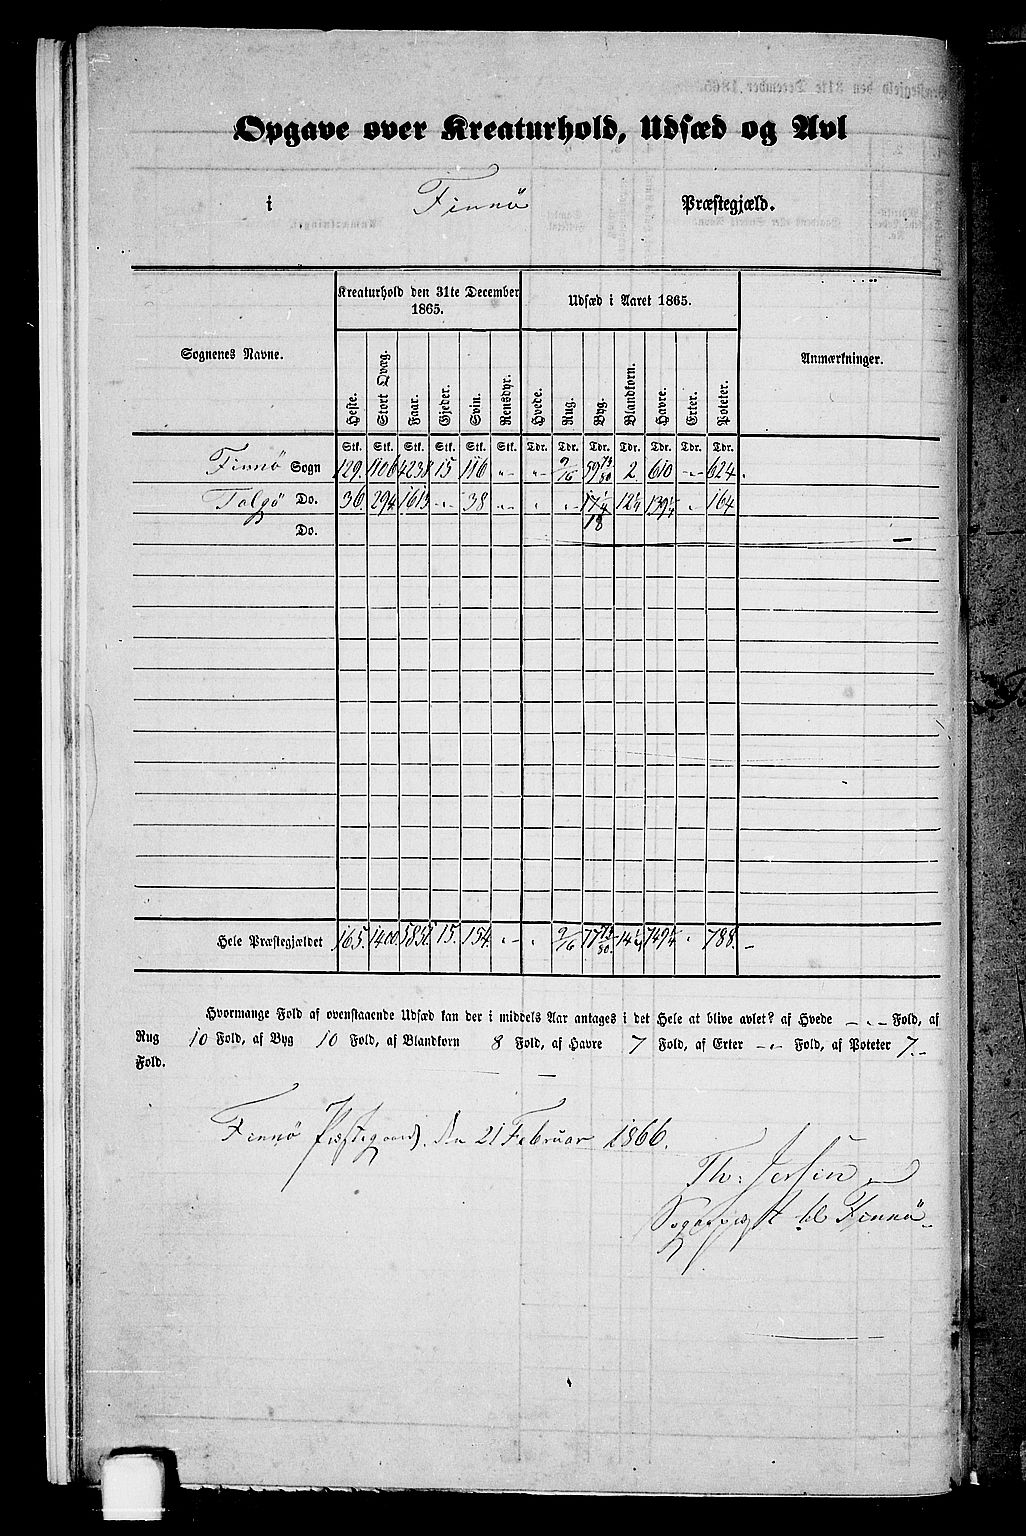 Opgave over Kreaturhold, Udsæd og Avl
i Finnø Præstegjæld.
Sognenes Navne. Kreaturhold den 31te December 1865. Udsæd i Aaret 1865. Anmærkninger.
Heste. Stort Qvæg. Faar. Gjeder. Svin. Rensdyr. Hvede. Rug. Byg. Blandkorn. Havre. Erter. Poteter.
Stk. Stk. Stk. Stk. Stk. Stk. Tdr. Tdr. Tdr. Tdr. Tdr. Tdr. Tdr.
Finnø Sogn 129. 1106 4238 15 116 „ „ 9/16 59 73/80 2. 610 „ 624
Talgø Do. 36. 294 1613 „ 38 „ „ „ 17 1/4 12 1/4 139 1/4 „ 164
18
Do.
Hele Præstegjældet 165. 1400 5851 15. 154. „ „ 9/16 77 73/80 14 1/4 749 1/4 „ 788.
Hvormange Fold af ovenstaaende Udsæd kan der i middels Aar antages i det Hele at blive avlet? af Hvede — „ — Fold, af
Rug 10 Fold, af Byg 10 Fold, af Blandkorn 8 Fold, af Havre 7 Fold, af Erter — „ — Fold, af Poteter 7. —
Fold.
Finnø Præstegaard, den 21 Februar 1866.
Th: Jersin
Sogneprest til Finnø